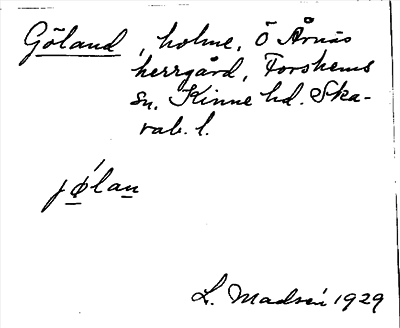 Göland, holme, Ö Årnäs
herrgård, Forshems
sn. Kinne hd. Ska-
rab. l.
jǿlan
L. Madsén 1929